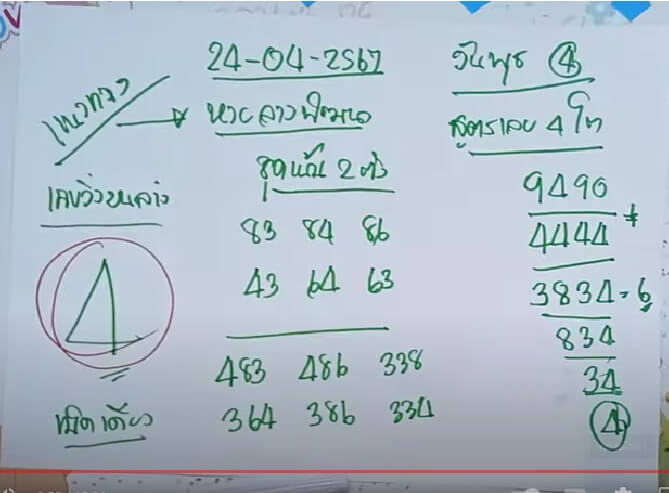 24-04-2567
วันพุธ 4
แนวทาง
หวยลาวพัฒนา
สูตรเลข 4 ตัว
ชุดเน้น 2 ตัว
เลขวิ่งบนล่าง
9490
83 84 86
4444 +
43 64 63
3834 = 6
4
834
483 486 338
34
364 386 334
4
เม็ดเดียว